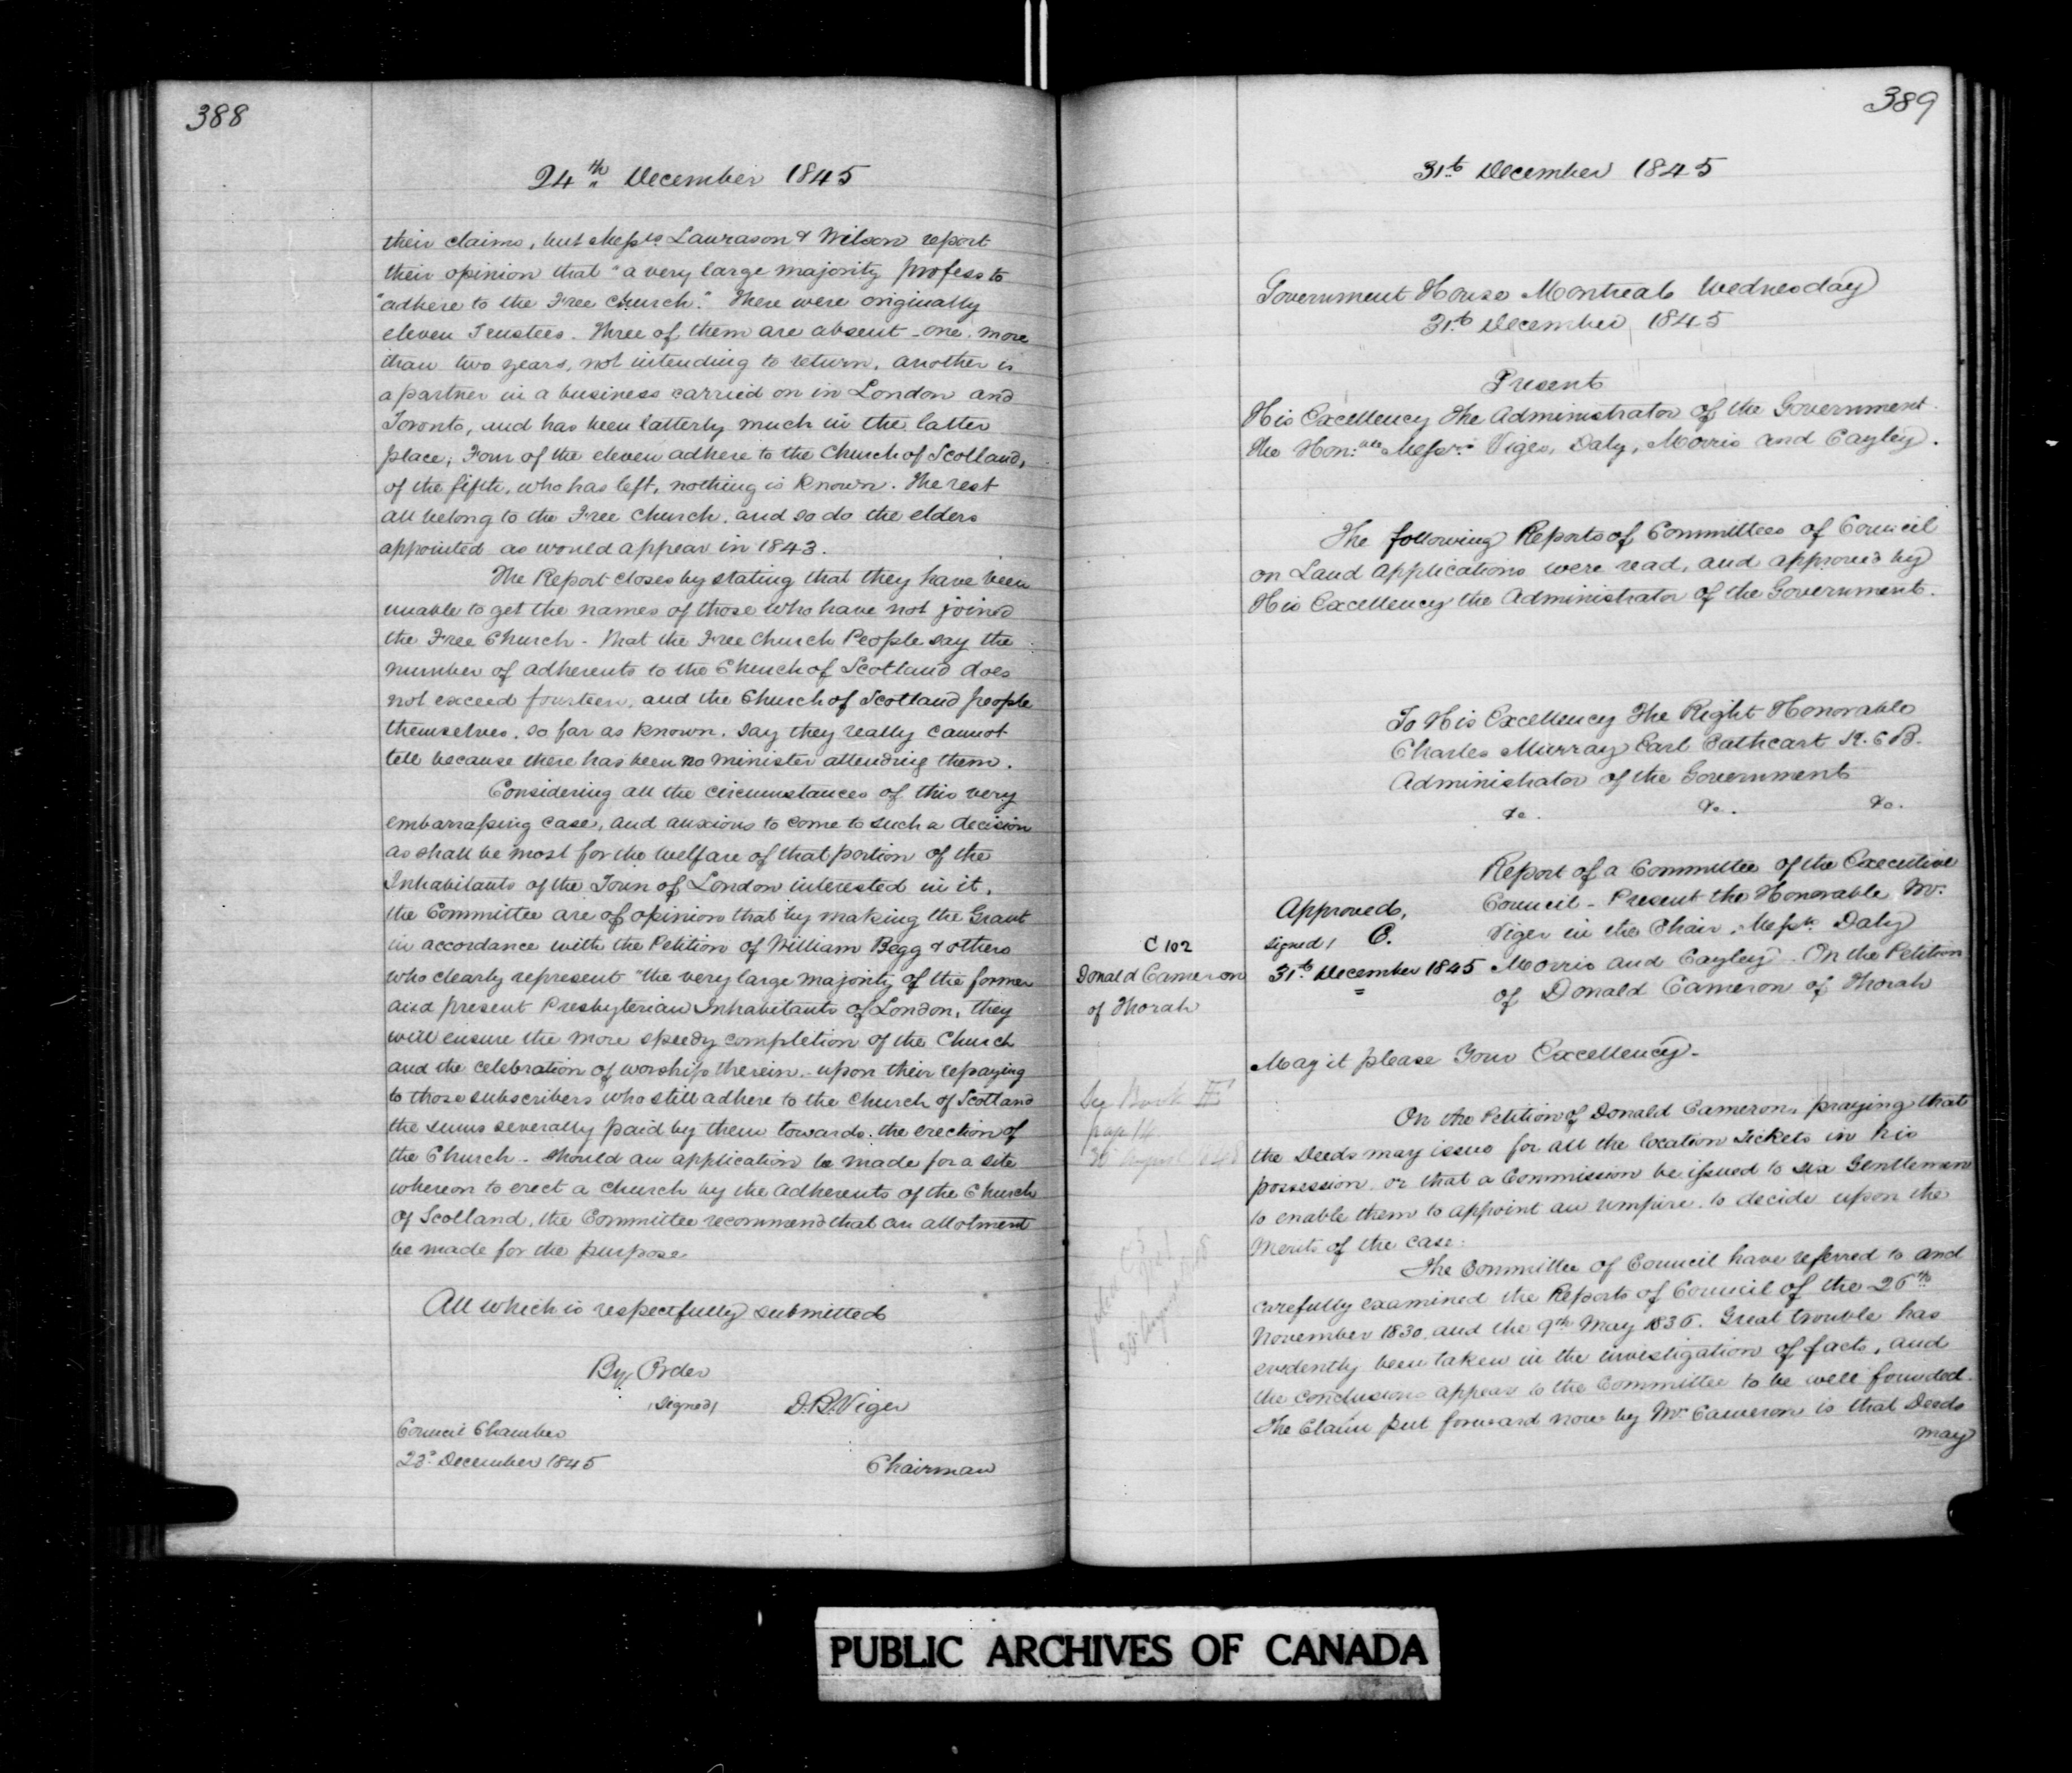 388
24th December 1845
their claims, but Messrs Laurason & Wilson report
their opinion that "a very large majority profess to
"adhere to the Free Church." There were originally
eleven Trustees. Three of them are absent - one, more
than two years, not intending to return, another is
a partner in a business carried on in London and
Toronto, and has been latterly much in the latter
place; Four of the eleven adhere to the Church of Scotland,
of the fifth, who has left, nothing is known. The rest
all belong to the Free Church, and so do the elders
appointed as would appear in 1843.
The Report closes by stating that they have been
unable to get the names of those who have not joined
the Free Church - That the Free Church People say the
number of adherents to the Church of Scotland does
not exceed fourteen, and the Church of Scotland people
themselves, so far as known, say they really cannot
tell because there has been no minister attending them.
Considering all the circumstances of this very
embarrassing case, and anxious to come to such a decision
as shall be most for the welfare of that portion of the
Inhabitants of the Town of London interested in it,
the Committee are of opinion that by making the Grant
in accordance with the Petition of William Begg & others
who clearly represent "the very large majority of the former
and present Presbyterian Inhabitants of London, they
will ensure the more speedy completion of the Church
and the celebration of worship therein, - upon their repaying
to those subscribers who still adhere to the Church of Scotland
the sums severally paid by them towards the erection of
the Church - Should an application be made for a site
whereon to erect a Church by the adherents of the Church
of Scotland, the Committee recommend that an allotment
be made for the purpose
All which is respectfully submitted
By Order
(signed) D. B. Viger
Council Chamber
23d December 1845
Chairman
389
31st December 1845
Government House Montreal Wednesday
31st December 1845
Present
His Excellency the Administrator of the Government.
The Hon:ble Messrs Viger, Daly, Morris and Cayley.
The following Reports of Committees of Council
on Land Applications were read, and approved by
His Excellency the Administrator of the Government.
To His Excellency The Right Honorable
Charles Murray Earl Cathcart K.C.B.
Administrator of the Government
&c. &c. &c.
C 102
Donald Cameron
of Thorah
Approved,
signed / C.
31st December 1845
Report of a Committee of the Executive
Council - Present the Honorable Mr.
Viger in the Chair, Messrs Daly
Morris and Cayley - On the Petition
of Donald Cameron of Thorah
May it please Your Excellency -
page 14
30 August 1848
30 August
On the Petition of Donald Cameron, praying that
the Deeds may issue for all the location Tickets in his
possession, or that a Commission be issued to six Gentlemen
to enable them to appoint an umpire, to decide upon the
Merits of the case:
The Committee of Council have referred to and
carefully examined the Reports of Council of the 26th
November 1830, and the 9th May 1836. Great trouble has
evidently been taken in the investigation of facts, and
the conclusions appear to the Committee to be well founded.
The Claim put forward now by Mr Cameron is that Deeds
may
PUBLIC ARCHIVES OF CANADA